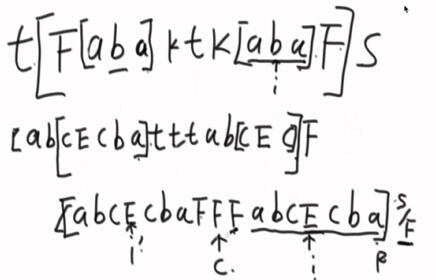 t[F[aba]ktk[aba]F]S
i
[ab[cEcba]tttab[cEc]]F
[abcEcbaFFFabcEcba]S/F
i' c. i R